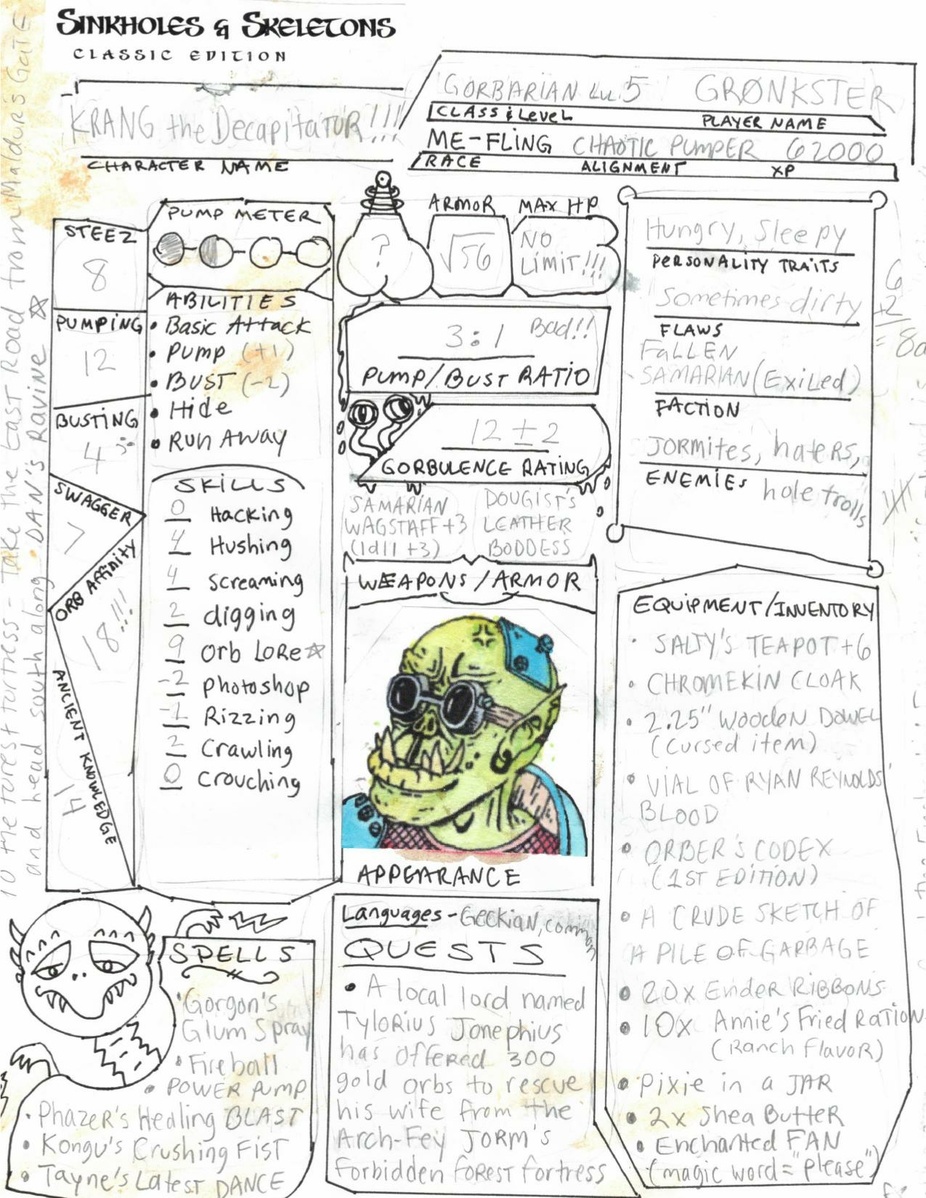 SINKHOLES & SKELETONS
CLASSIC EDITION
KRANG the DecapitatUR!!!
CHARACTER NAME
GORBARIAN Lv. 5 GRØNKSTER
CLASS & LEVEL PLAYER NAME
ME-FLING CHAOTIC PUMPER 62000
RACE ALIGNMENT XP
STEEZ
8
PUMPING
12
BUSTING
4
SWAGGER
7
ORB AFFINITY
18!!!
ANCIENT KNOWLEDGE
4
PUMP METER
ABILITIES
• Basic Attack
• Pump (+1)
• BUST (-2)
• Hide
• Run Away
SKILLS
0 Hacking
4 Hushing
4 Screaming
2 digging
9 Orb Lore☆
-2 Photoshop
-1 Rizzing
2 Crawling
0 Crouching
?
ARMOR
√56
MAX HP
NO
LIMIT!!!
3:1 Bad!!
PUMP/BUST RATIO
12 ± 2
GORBULENCE RATING
SAMARIAN
WAGSTAFF+3
(1d11 +3)
DOUGIST'S
LEATHER
BODDESS
WEAPONS/ARMOR
APPEARANCE
Hungry, Sleepy
PERSONALITY TRAITS
Sometimes dirty
FLAWS
FALLEN
SAMARIAN (Exiled)
FACTION
JORMITES, haters,
ENEMIES hole trolls
6
+2
= 8
EQUIPMENT/INVENTORY
• SALTY'S TEAPOT+6
• CHROMEKIN CLOAK
• 2.25" Wooden DOWEL
(cursed item)
• VIAL OF RYAN REYNOLDS'
BLOOD
• ORBER'S CODEX
(1ST EDITION)
• A CRUDE SKETCH OF
A PILE OF GARBAGE
• 20x Ender RIBBONS
• 10x Annie's Fried RATION
(Ranch Flavor)
• Pixie in a JAR
• 2x Shea Butter
• Enchanted FAN
(magic word = "please")
SPELLS
• Gorgon's
Glum Spray
• Fireball
• POWER PUMP
• Phazer's Healing BLAST
• Kongu's Crushing FIST
• Tayne's Latest DANCE
Languages - Geckian, common
QUESTS
• A local lord named
Tylorius Jonephius
has offered 300
gold orbs to rescue
his wife from the
Arch-Fey JORM'S
Forbidden FOREST fortress
To the forest fortress - Take the East Road from Maldur's GaTE
and head south along DAN's Ravine ☆